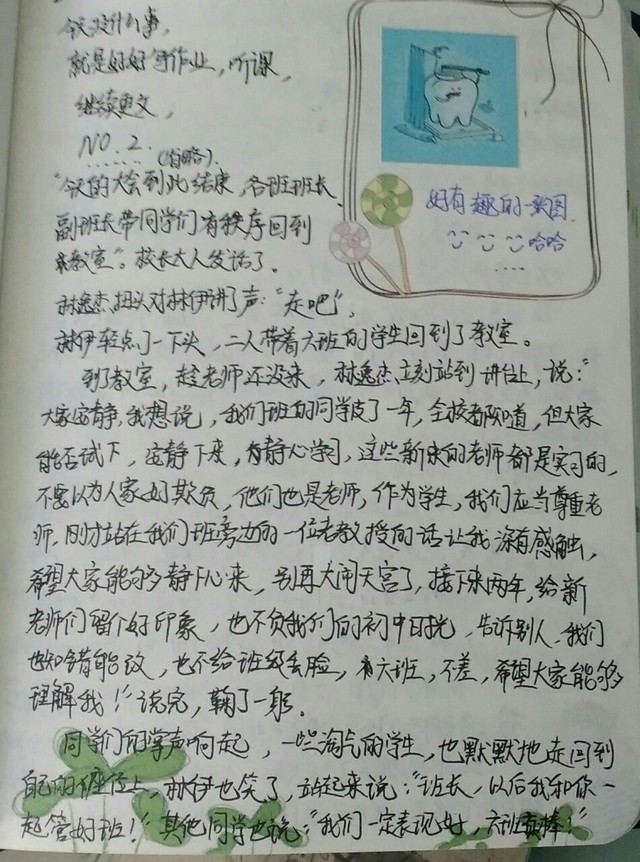 今天没什么事，
就是好好写作业，听课，
继续更文，
NO.2.
......(省略).
"今天的大会到此结束，各班班长、
副班长带同学们有秩序回到
教室"。校长大人发话了。
林逸杰扭头对林伊讲了声："走吧"，
林伊轻点了一下头，二人带着六班的学生回到了教室。
到了教室，赵老师还没来，林逸杰立刻站到讲台上，说："
大家安静，我想说，我们班的同学皮了一年，全校都知道，但大家
能否试下，安静下来，为静心学习，这些新来的老师都是实习的，
不要以为人家好欺负，他们也是老师，作为学生，我们应当尊重老
师，刚才站在我们班旁边的一位老教授的话让我深有感触，
希望大家能够静下心来，别再大闹天宫了，接下来两年，给新
老师们留个好印象，也不负我们的初中时光，告诉别人，我们
也知错能改，也不给班级丢脸，六班，不差，希望大家能够
理解我！"说完，鞠了一躬。
同学们的掌声响起，一些淘气的学生，也默默地走回到
自己的座位上，林伊也笑了，站起来说："班长，以后我和你一
起管好班！"其他同学也说："我们一定表现好，六班最棒！"
好有趣的一张图.
哈哈
....